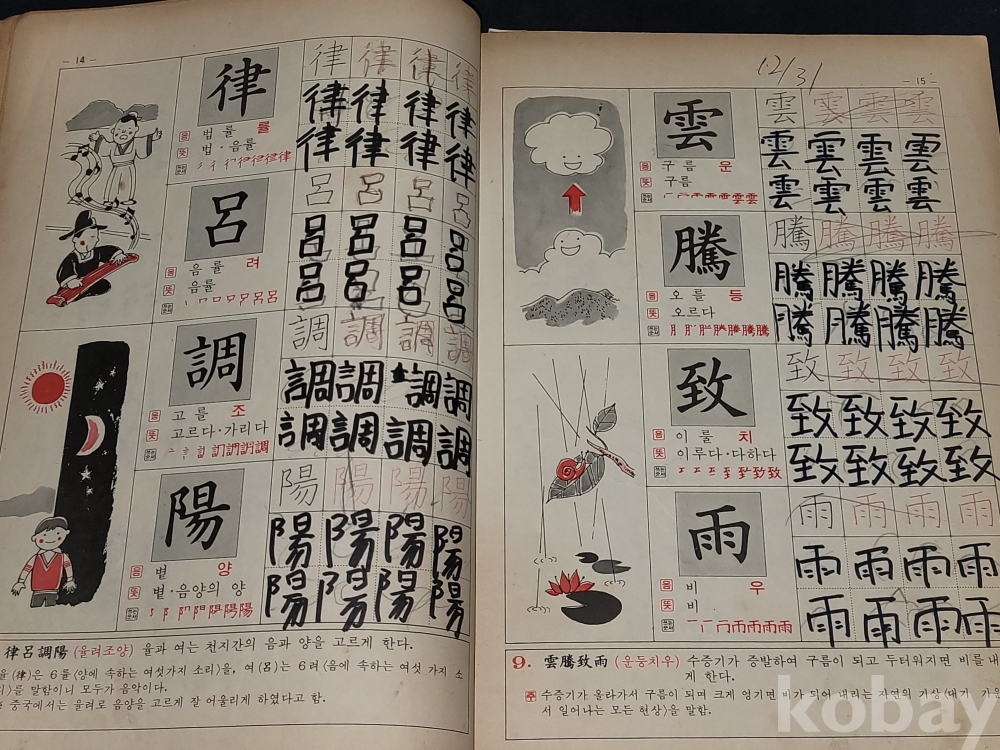 - 14 -
律
음 법 률 률
뜻 법·음률
律 律 律 律
律 律 律 律
律 律 律 律
呂
음 음 률 려
뜻 음률
呂 呂 呂 呂
呂 呂 呂 呂
呂 呂 呂 呂
調
음 고 를 조
뜻 고르다·가리다
調 調 調 調
調 調 調 調
調 調 調 調
陽
음 볕 양
뜻 볕·음양의 양
陽 陽 陽 陽
陽 陽 陽 陽
陽 陽 陽 陽
律呂調陽 (율려조양) 율과 여는 천지간의 음과 양을 고르게 한다.
(律)은 6률〈양에 속하는 여섯가지 소리〉을, 여(呂)는 6려〈음에 속하는 여섯 가지 소
〉를 말함이니 모두가 음악이다.
중국에서는 율려로 음양을 고르게 잘 어울리게 하였다고 함.
12/31
- 15 -
雲
음 구 름 운
뜻 구름
雲 雲 雲 雲
雲 雲 雲 雲
雲 雲 雲 雲
騰
음 오 를 등
뜻 오르다
騰 騰 騰 騰
騰 騰 騰 騰
騰 騰 騰 騰
致
음 이 룰 치
뜻 이루다·다하다
致 致 致 致
致 致 致 致
致 致 致 致
雨
음 비 우
뜻 비
雨 雨 雨 雨
雨 雨 雨 雨
雨 雨 雨 雨
9. 雲騰致雨 (운등치우) 수증기가 증발하여 구름이 되고 두터워지면 비를 내
게 한다.
주 수증기가 올라가서 구름이 되며 크게 엉기면 비가 되어 내리는 자연의 기상〈대기 가운
서 일어나는 모든 현상〉을 말함.
kobay